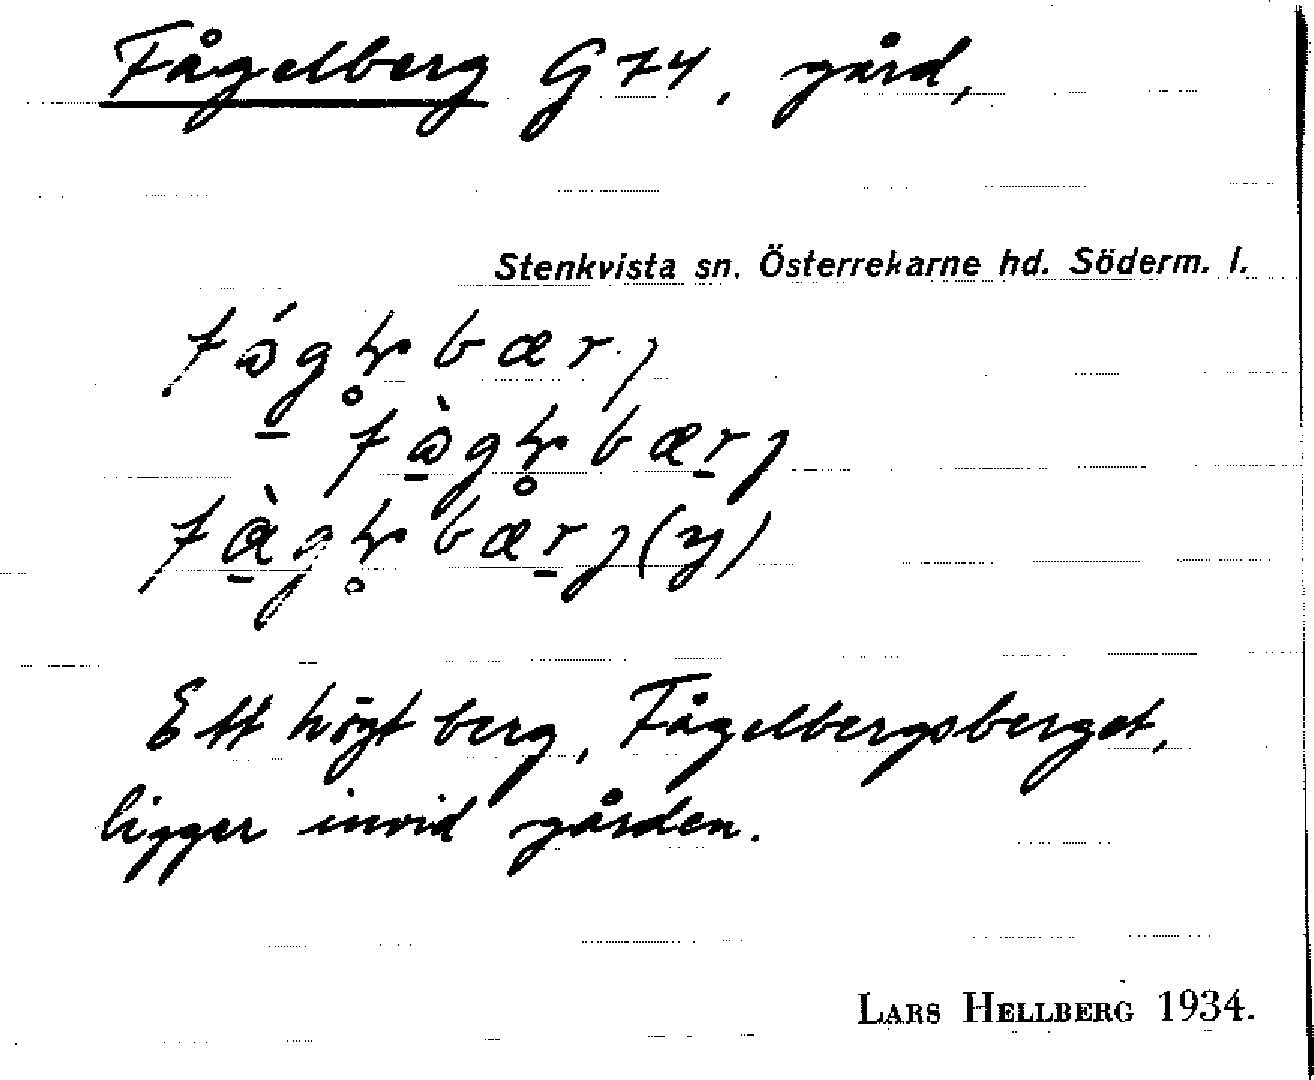 Fågelberg G74, gård,
Stenkvista sn. Österrekarne hd. Söderm. l.
Ett högt berg, Fågelbergsberget,
ligger invid gården.
LARS HELLBERG 1934.